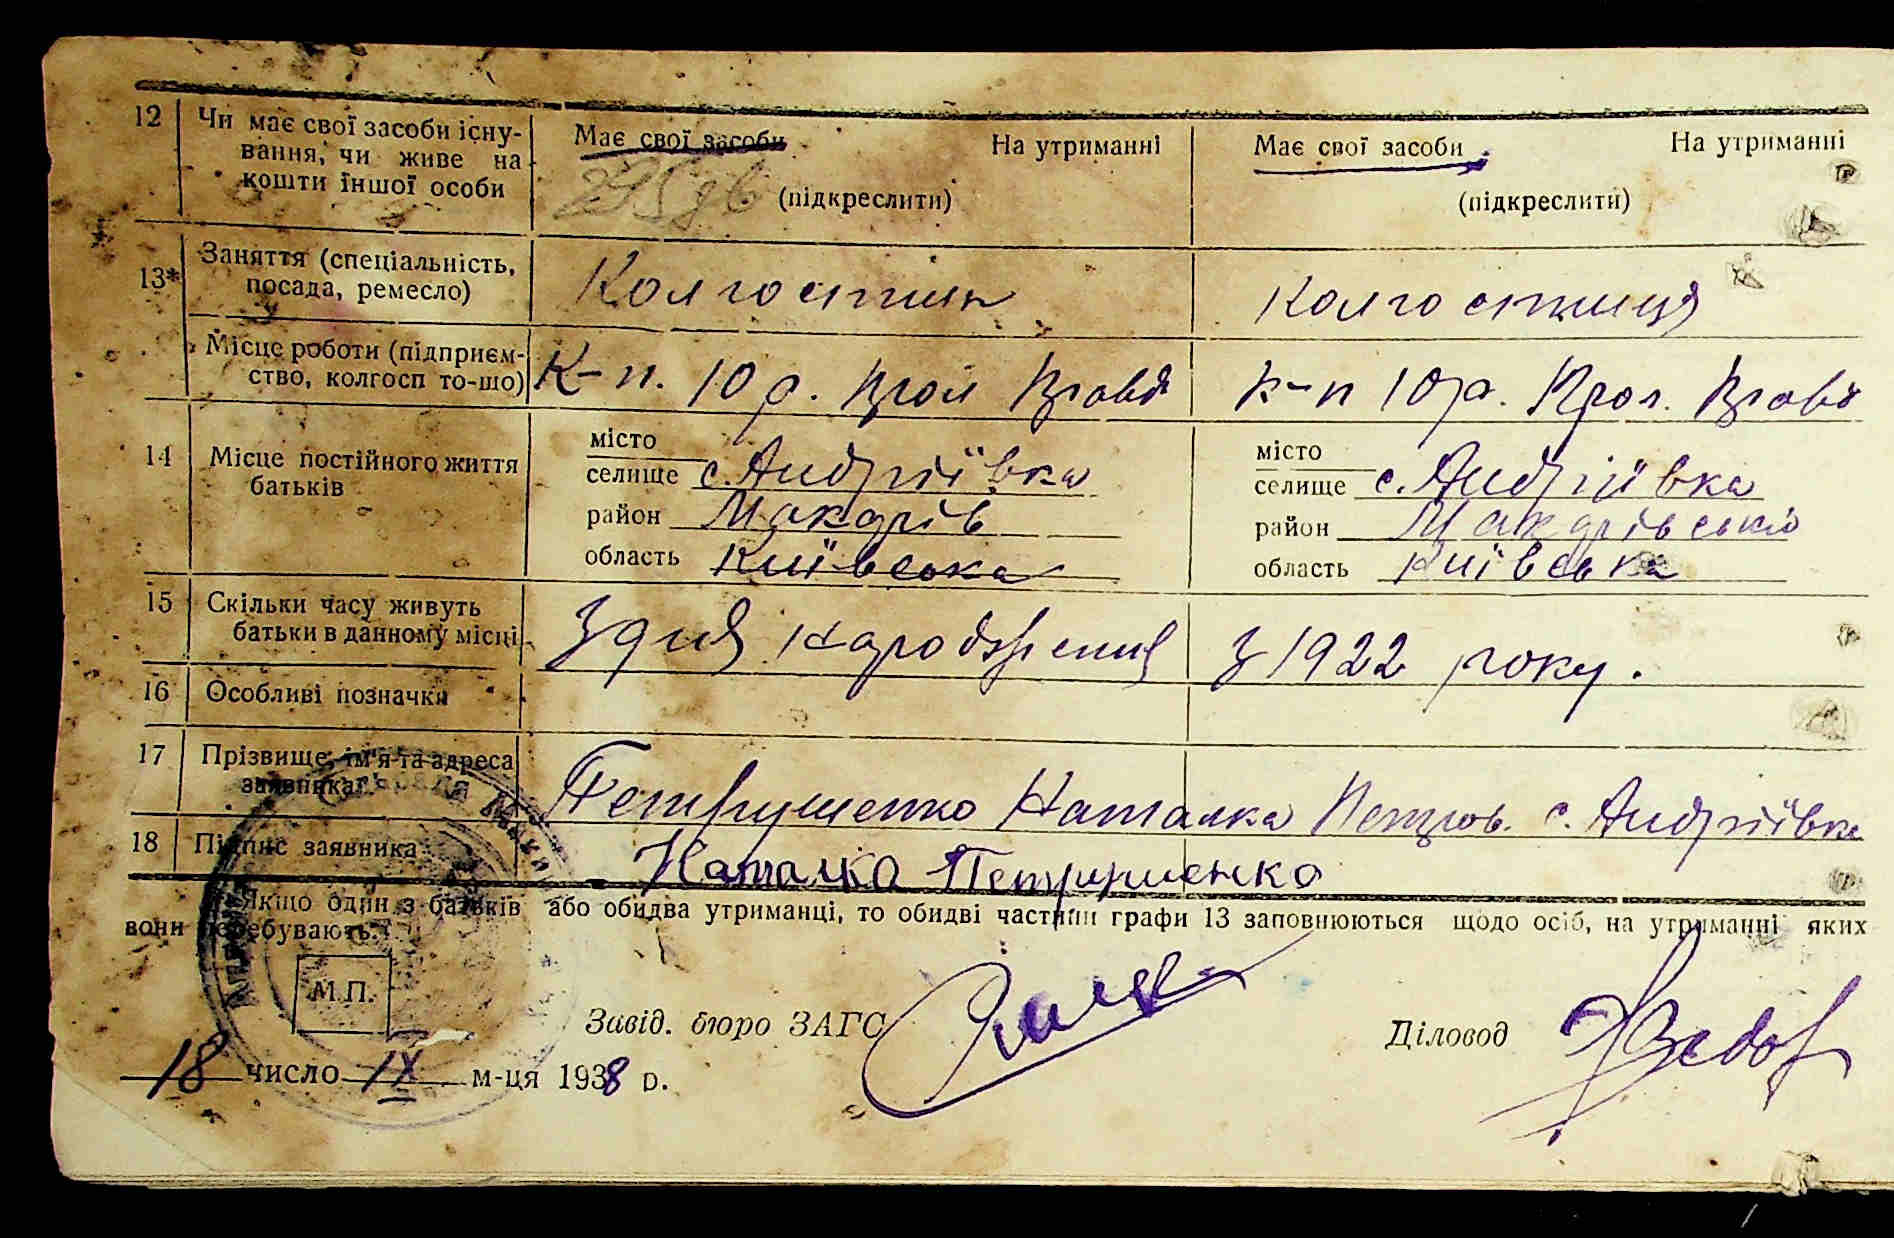 12 Чи має свої засоби існу- Має свої засоби На утриманні Має свої засоби На утриманні
вання, чи живе на
кошти іншої особи (підкреслити) (підкреслити)
13* Заняття (спеціальність, Колгоспник Колгоспниця
посада, ремесло)
Місце роботи (підприєм- К-п. 10 р. К-п 10 р.
ство, колгосп то-що)
14 Місце постійного життя батьків
місто місто
селище с. Андріївка селище с. Андріївка
район Макарів район Макарівськ
область Київська область Київська
15 Скільки часу живуть З дня народження З 1922 року.
батьки в данному місці
16 Особливі позначки
17 Прізвище, ім'я та адреса Петрушенко Наталка Петров. с. Андріївка
заявника
18 Підпис заявника Наталка Петрушенко
Якщо один з батьків або обидва утриманці, то обидві частини графи 13 заповнюються щодо осіб, на утриманні яких
вони перебувають.
М.П.
Завід. бюро ЗАГС Діловод
18 число IX м-ця 1938 р.